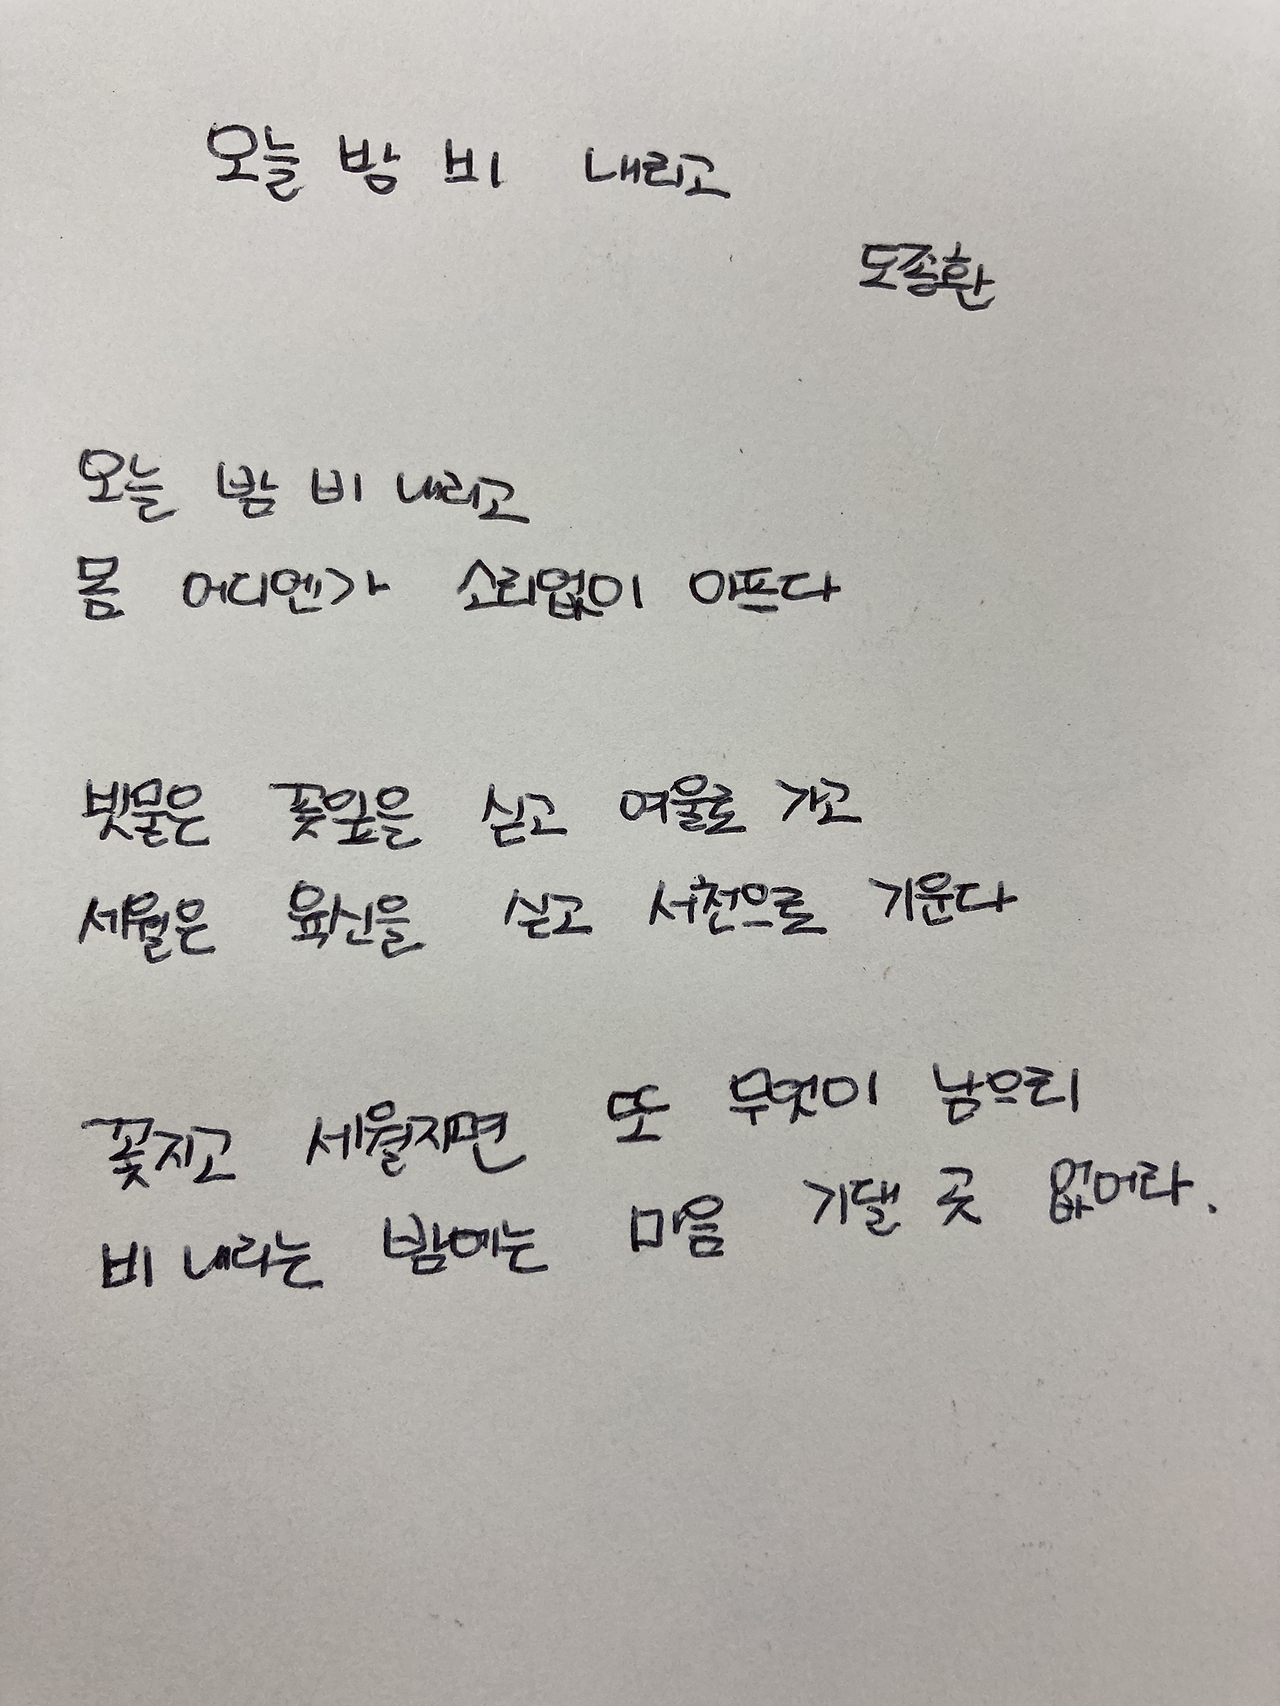 오늘 밤 비 내리고
도종환
오늘 밤 비 내리고
몸 어디엔가 소리없이 아프다
빗물은 꽃잎을 싣고 여울로 가고
세월은 육신을 싣고 서천으로 기운다
꽃지고 세월지면 또 무엇이 남으리
비 내리는 밤에는 마음 기댈 곳 없어라.